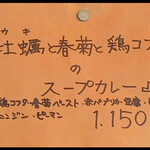 カキ
牡蠣と春菊と鶏コフ
の
スープカレー
鶏コフタ・春菊ペースト・赤パプリカ・豆腐・
ニンジン・ピーマン
1.150